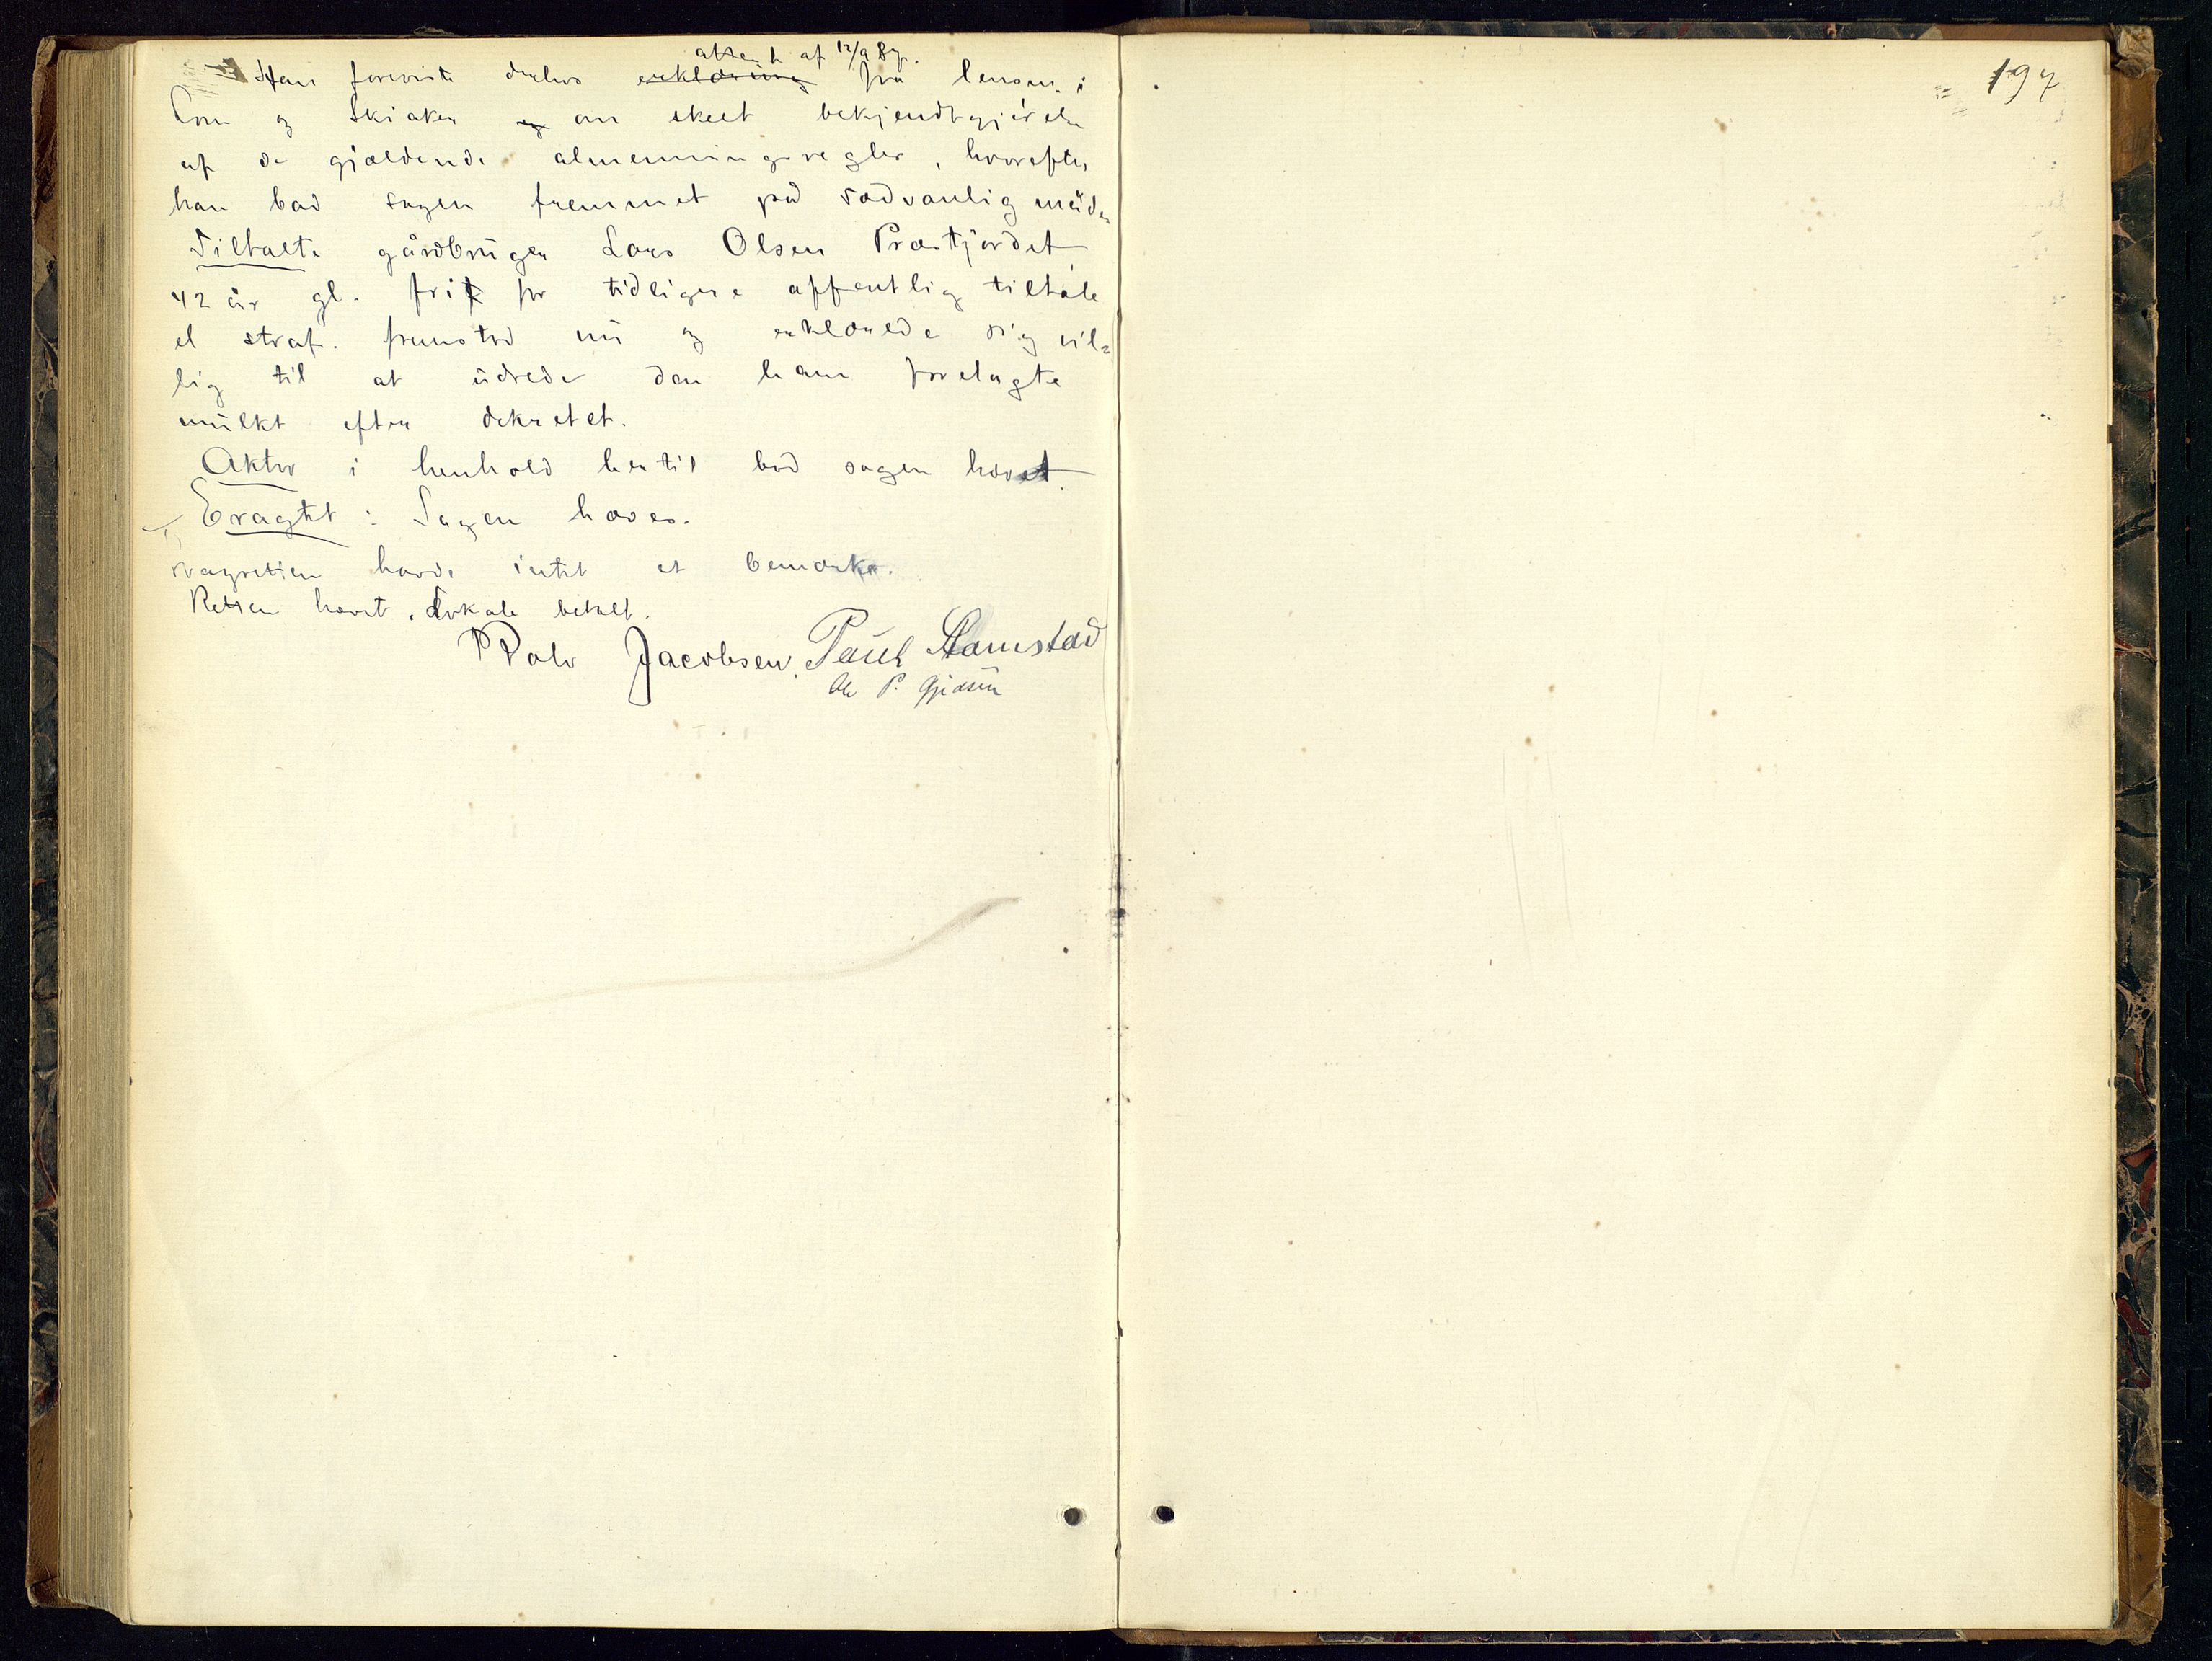 attest af 12/9 89.
Han foreviste derhos erklæring fra lensm. i
Lom og Skiaker og om skeet bekjendtgjørelse
af de gjældende almenningsregler, hvorefter
han bad sagen fremmet på sædvanlig måde.
Tiltalte gårdbruger Lars Olsen Præstjordet
42 år gl. frit for tidligere offentlig tiltale
el straf. fremstod nu og erklærede sig vil-
lig til at udrede den ham forelagte
mulkt efter dekretet.
Aktor i henhold hertil bad sagen hævet.
Eragtet: Sagen hæves.
havde intet at bemærke.
Retten hævet. Lokale betalt.
Jacobsen. Paul Aamstad
Ole P.
197